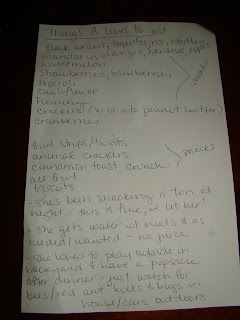 Things A loves to eat
black beans, taquitos, rice, noodles
mandarin oranges, bananas, apples
watermelon
strawberries, blueberries
broccoli
cauliflower
hominy
crackers (w or w/o peanut butter)
cranberries
meals
fruit strips/twists
animal crackers
cinnamon toast crunch
all fruit
biscuits
snacks
- she's been snacking a ton at
night - this is fine, we let her!
- she gets water w/ meals & as
needed/wanted - no juice
- she loves to play outside in
backyard & have a popsicle
after dinner - just watch for
bees/red ant hills & bugs in
house/cars outdoors